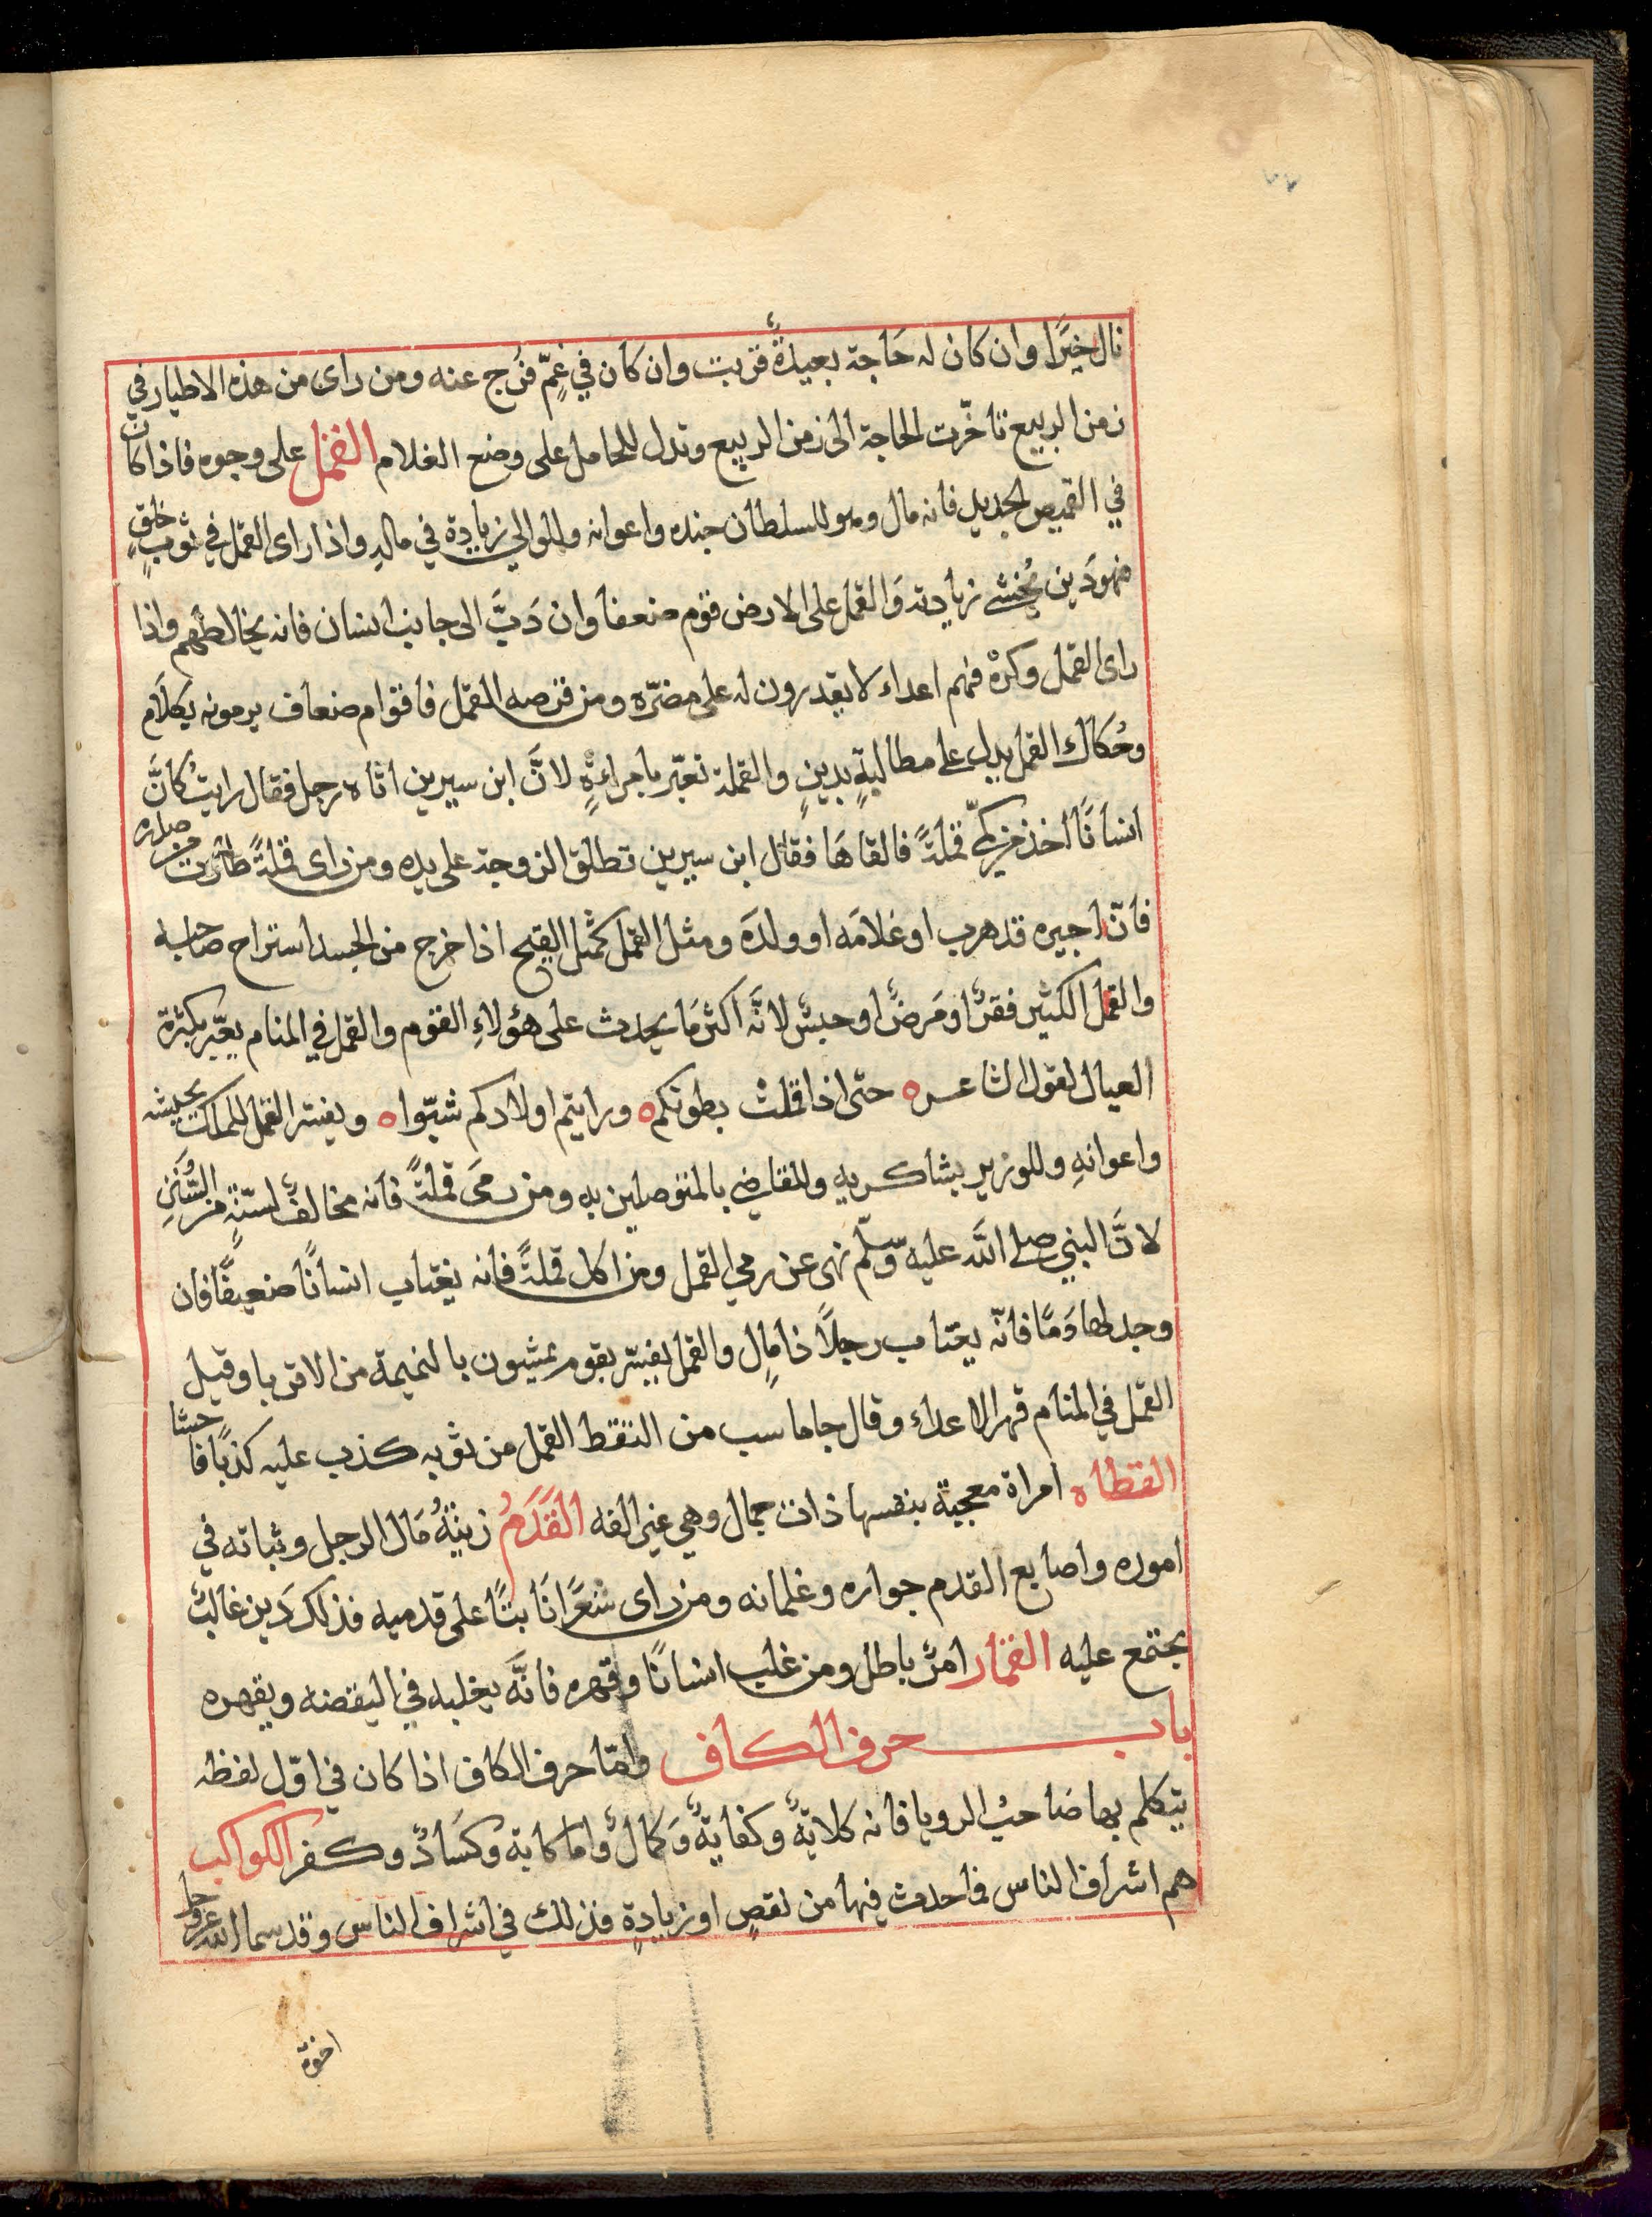 ٧٧
نال خيرًا وان كان له حَاجة بعيدةٌ قربت وان كان في غمٍّ فُرج عنه ومن راى من هذه الاطيار في
زمن الربيع تأخّرت الحاجة الى زمن الربيع وتدل للحامل على وضع الغلام القمل على وجوه فاذا كان
في القميص الجديد فانه مال وهو للسلطان جنده واعوانه وللوالي زيادة في ماله واذا راى القمل في ثوبٍ خلقٍ
فهو دَين يُخشى زيادته وَالقمل على الارض قوم ضعفا وان دَبَّ الى جانب انسان فانه يخالطهم واذا
راى القمل وكرهْ فهم اعداء لا يقدرون له على مضرّه ومن قرصه القمل فاقوام ضعاف يرمونه بكلَام
وحُكَاك القمل يدل على مطالبةٍ بدينٍ والقملة تعبّر بامراءةٍ لانَّ ابن سيرين اتاه رجل فقال رايتُ كانَّ
انسانًا أخذ من كمّي قملةً فالقاهَا فقال ابن سيرين تطلق الزوجة على يده ومن راى قملةً طارت من صدره
فانّ اجيره قد هرب او غلامَه او ولدَه ومثل القمل كمثل القيح اذا خرج من الجسد استراح صاحبه
والقمل الكثير فقرٌ او مَرضٌ او حبسٌ لانَّه اكثر مَا يحدث على هؤلاءِ القوم والقمل في المنام يعبّر بكثرة
العيال لقول الشاعر ه حتى اذا قملت بطونكم ه ورايتم اولادكم شبّوا ه ويفسر القمل للملك بجيشه
واعوانهِ وللوزير بشاكريه وللقاضي بالمتوصلين به ومن رمَى قملةً فانه مخالفٌ لسنّةٍ من السُّنَنِ
لانَّ النبي صلى الله عليه وسلّم نهى عن رمي القمل ومن اكل قملةً فانه يغتاب انسانًا ضعيفًا فان
وجد لها دَمًا فانّه يغتاب رجلاً ذا مالٍ والقمل يفسّر بقوم يمشون بالنميمة من الاقربا وقيل
القمل في المنام قهر الاعداء وقال جاماسب من التقط القمل من ثوبه كذب عليه كذبًا فاحشا
القطاه امراة معجبة بنفسها ذات جمال وهي غير الفه القَدَمُ زينةُ مَال الرجل وثباته في
اموره واصابع القدم جواره وغلمانه ومن راى شعرًا نَابتًا على قدميه فذلك دَين غالبٌ
يجتمع عليه القمار امرٌ باطل ومن غلب انسانًا وقهره فانَّه يغلبه في اليقضه ويقهره
باب حرف الكاف وامّا حرف الكاف اذا كان في اوّل لفظه
يتكلم بها صَاحبُ الرويا فانه كلايةٌ وكفايةٌ وَكمالٌ واما كابة وكسَادٌ وكفر الكواكب
هم اشراف الناس فما حدث فيها من نقصٍ او زيادةٍ فذلك في اشراف الناس وقد سما الله عز وجل
اخوة